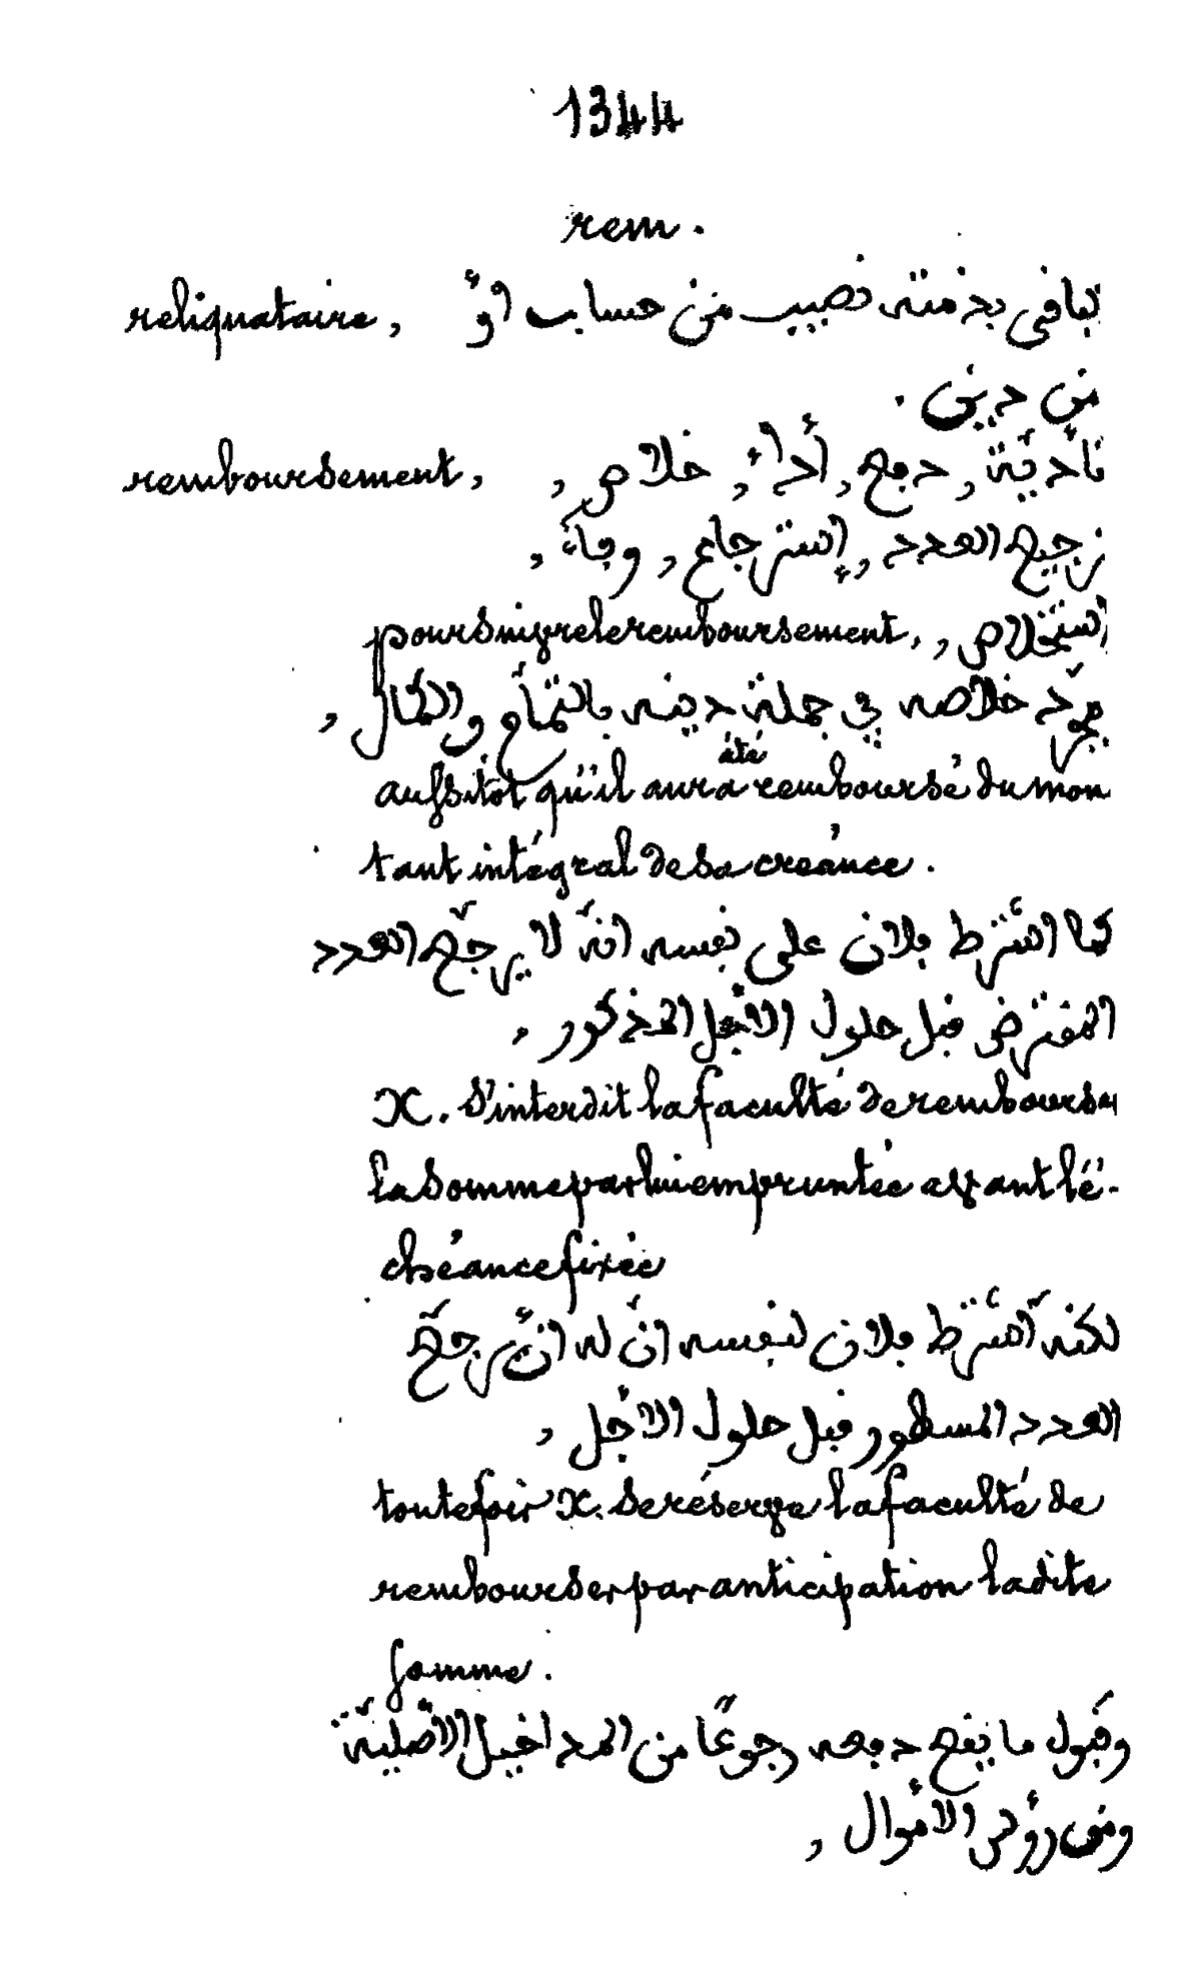 1344
rem.
reliquataire, تباقى بذمته نصيب من حساب أوْ
من دين.
remboursement, تأديَة, دفع, أداء, خلاص,
ترجيع العدد, إسترجاع, وفاء,
poursuivre le remboursement, , استخلاص
بمجرّد خلاصه في جملة دينه بالتمام والكمال,
aussitôt qu'il aura été remboursé du mon
tant intégral de sa créance.
كما اشترط فلان على نفسه انّه لا يرجّع العدد
المقترض قبل حلول الأجل المذكور,
X. S'interdit la faculté de rembourser
la Somme par lui empruntée avant l'é-
chéance fixée
لكنّه اشترط فلان لنفسه انّ له ان يرجّع
العدد المسطور قبل حلول الأجل,
toutefois X. Se réserve la faculté de
rembourser par anticipation ladite
somme.
وقبول ما يقع دفعه رجوعًا من المداخيل الأصليّة
ومن رؤس الأموال,